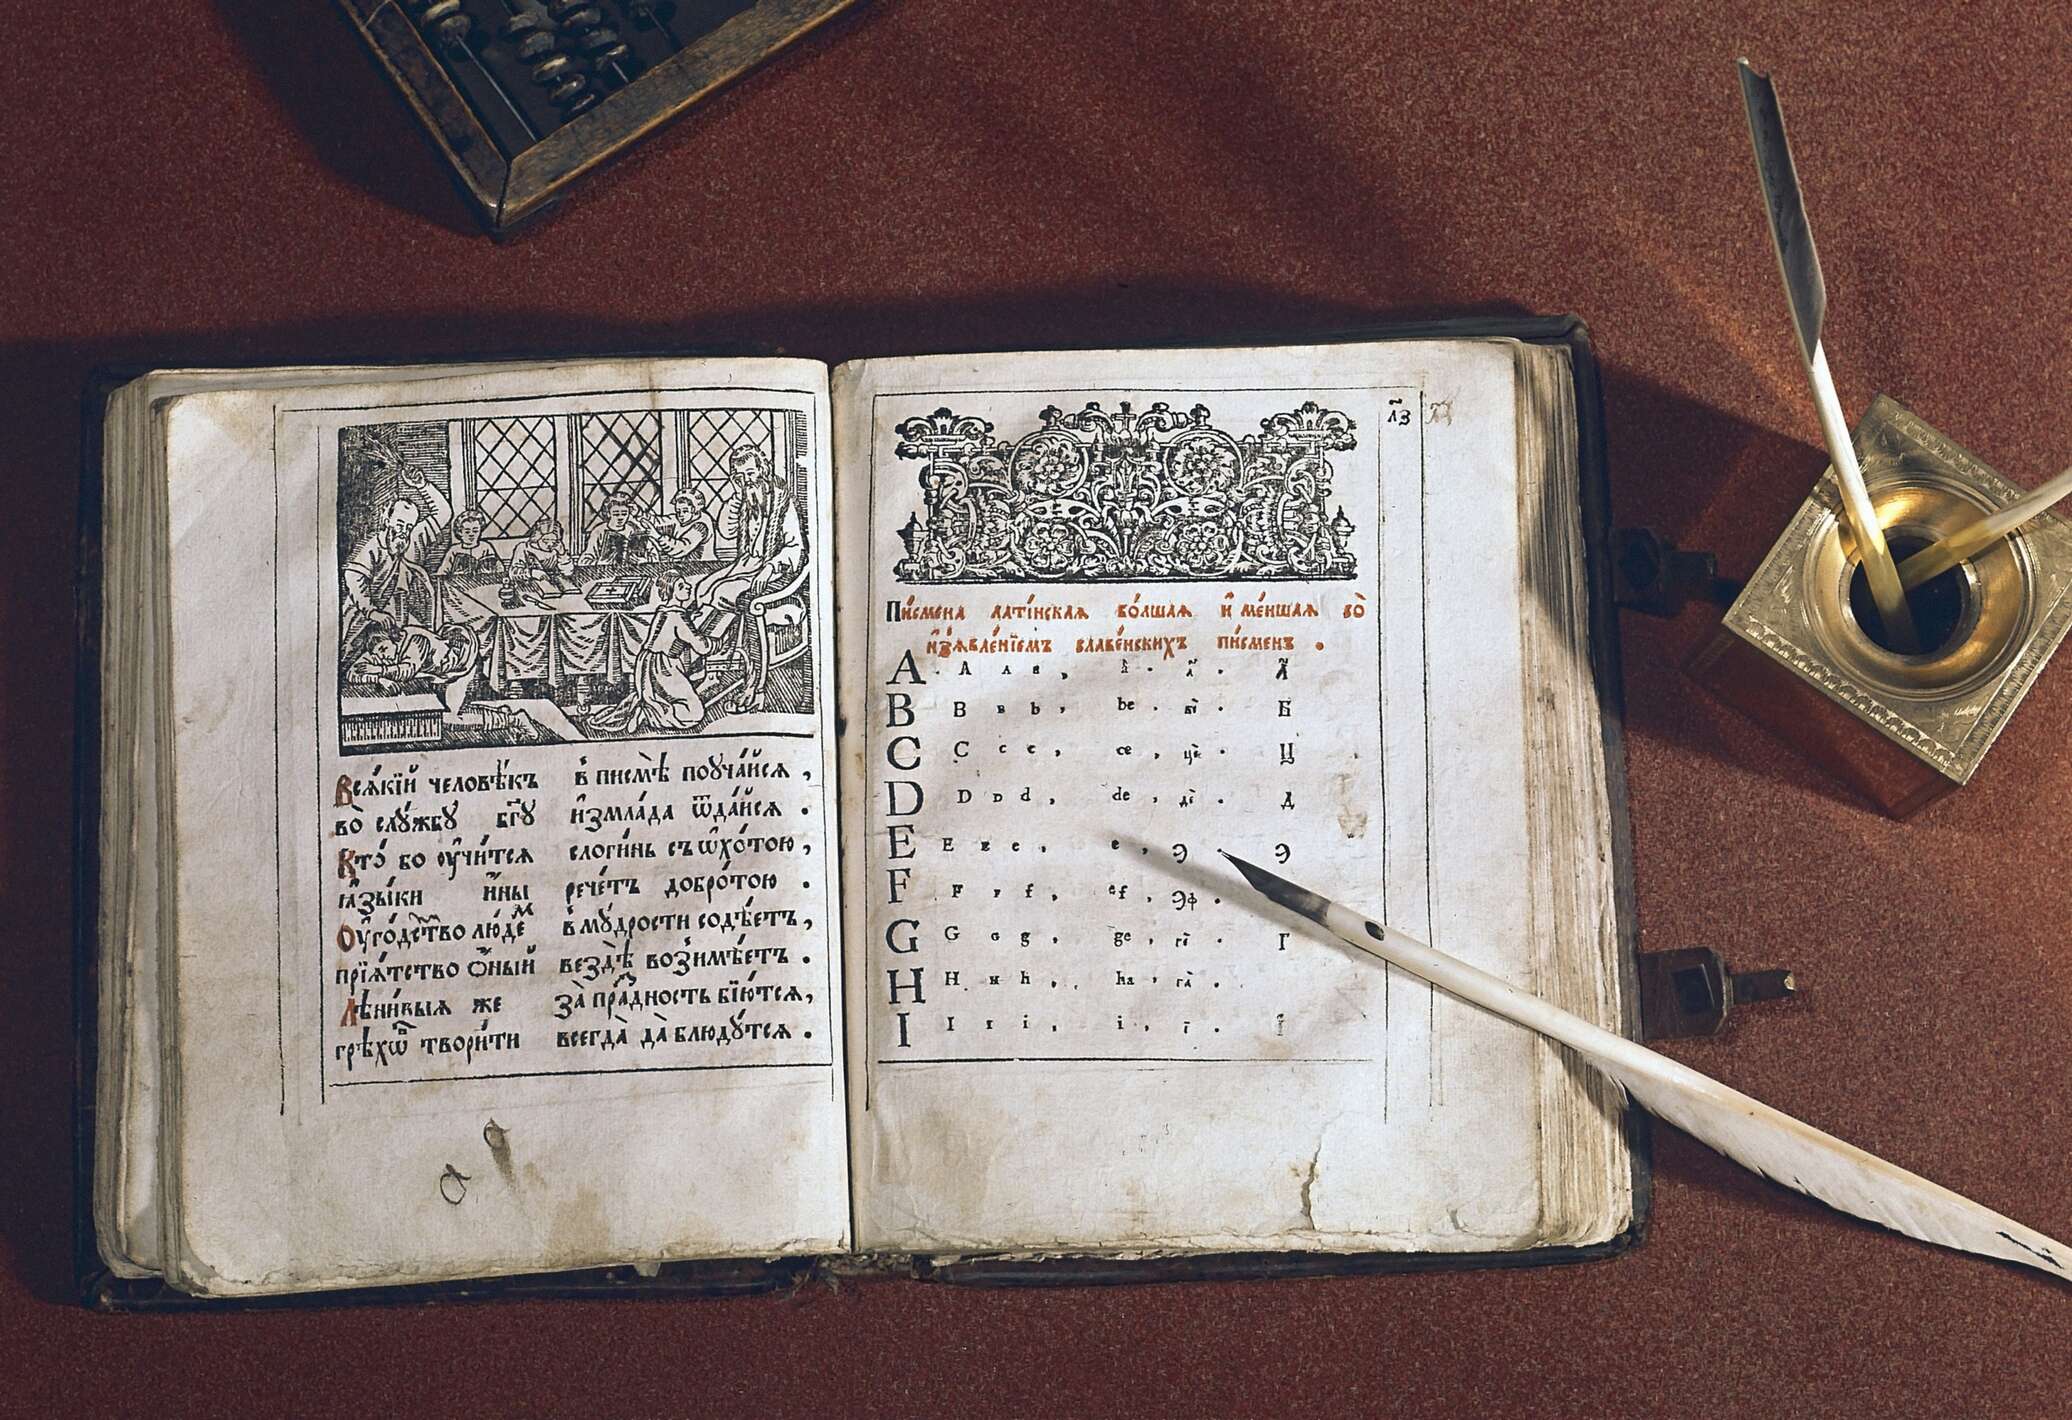 Всѧ́кїй человѣ́къ в̾ писмѣ̀ поꙋча́йсѧ ,
во̀ слꙋ́жбꙋ бг҃ꙋ и҆змла́да ѿда́йсѧ .
Кто́ бо оу҆чи́тсѧ слоги́нь съ ѡ҆хо́тою ,
ꙗ҆зы́ки и҆́ны рече́тъ добро́тою .
Оу҆го́дство люде́м в̾ мꙋ́дрости содѣ́етъ ,
прїѧ́тство ѻ҆́ный вездѣ̀ возимѣ́етъ .
Лѣни́выѧ же за̀ пра́дность бїю́тсѧ ,
грѣхѡ́въ твори́ти всегда̀ да̀ блюдꙋ́тсѧ .
л҃з
Пи́смена лати́нскаѧ бо́лшаѧ и҆ ме́ншаѧ во̀
и҆з̾ѧвле́нїемъ славе́нскихъ пи́сменъ .
A . A a , а҆ . А
B B ʙ b , be . бе́ . Б
C C c c , ce , цѐ . Ц
D D ᴅ d , de , дѐ . Д
E E ᴇ e , e , Э . Э
F F ꜰ f , ef , Эф .
G G ɢ g , ge , гѐ . Г
H H ʜ h , ha , га̀ .
I I ɪ i , i , і҆ . І
a